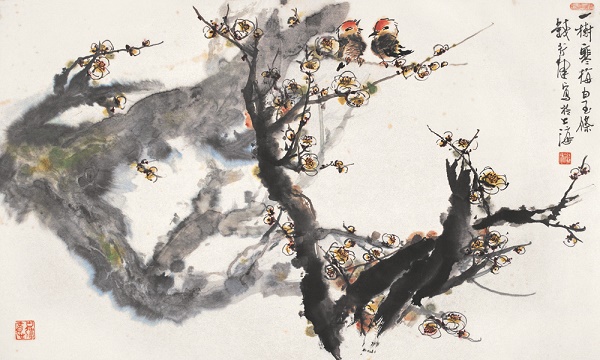 一樹寒梅白玉條
錢行健寫於上海